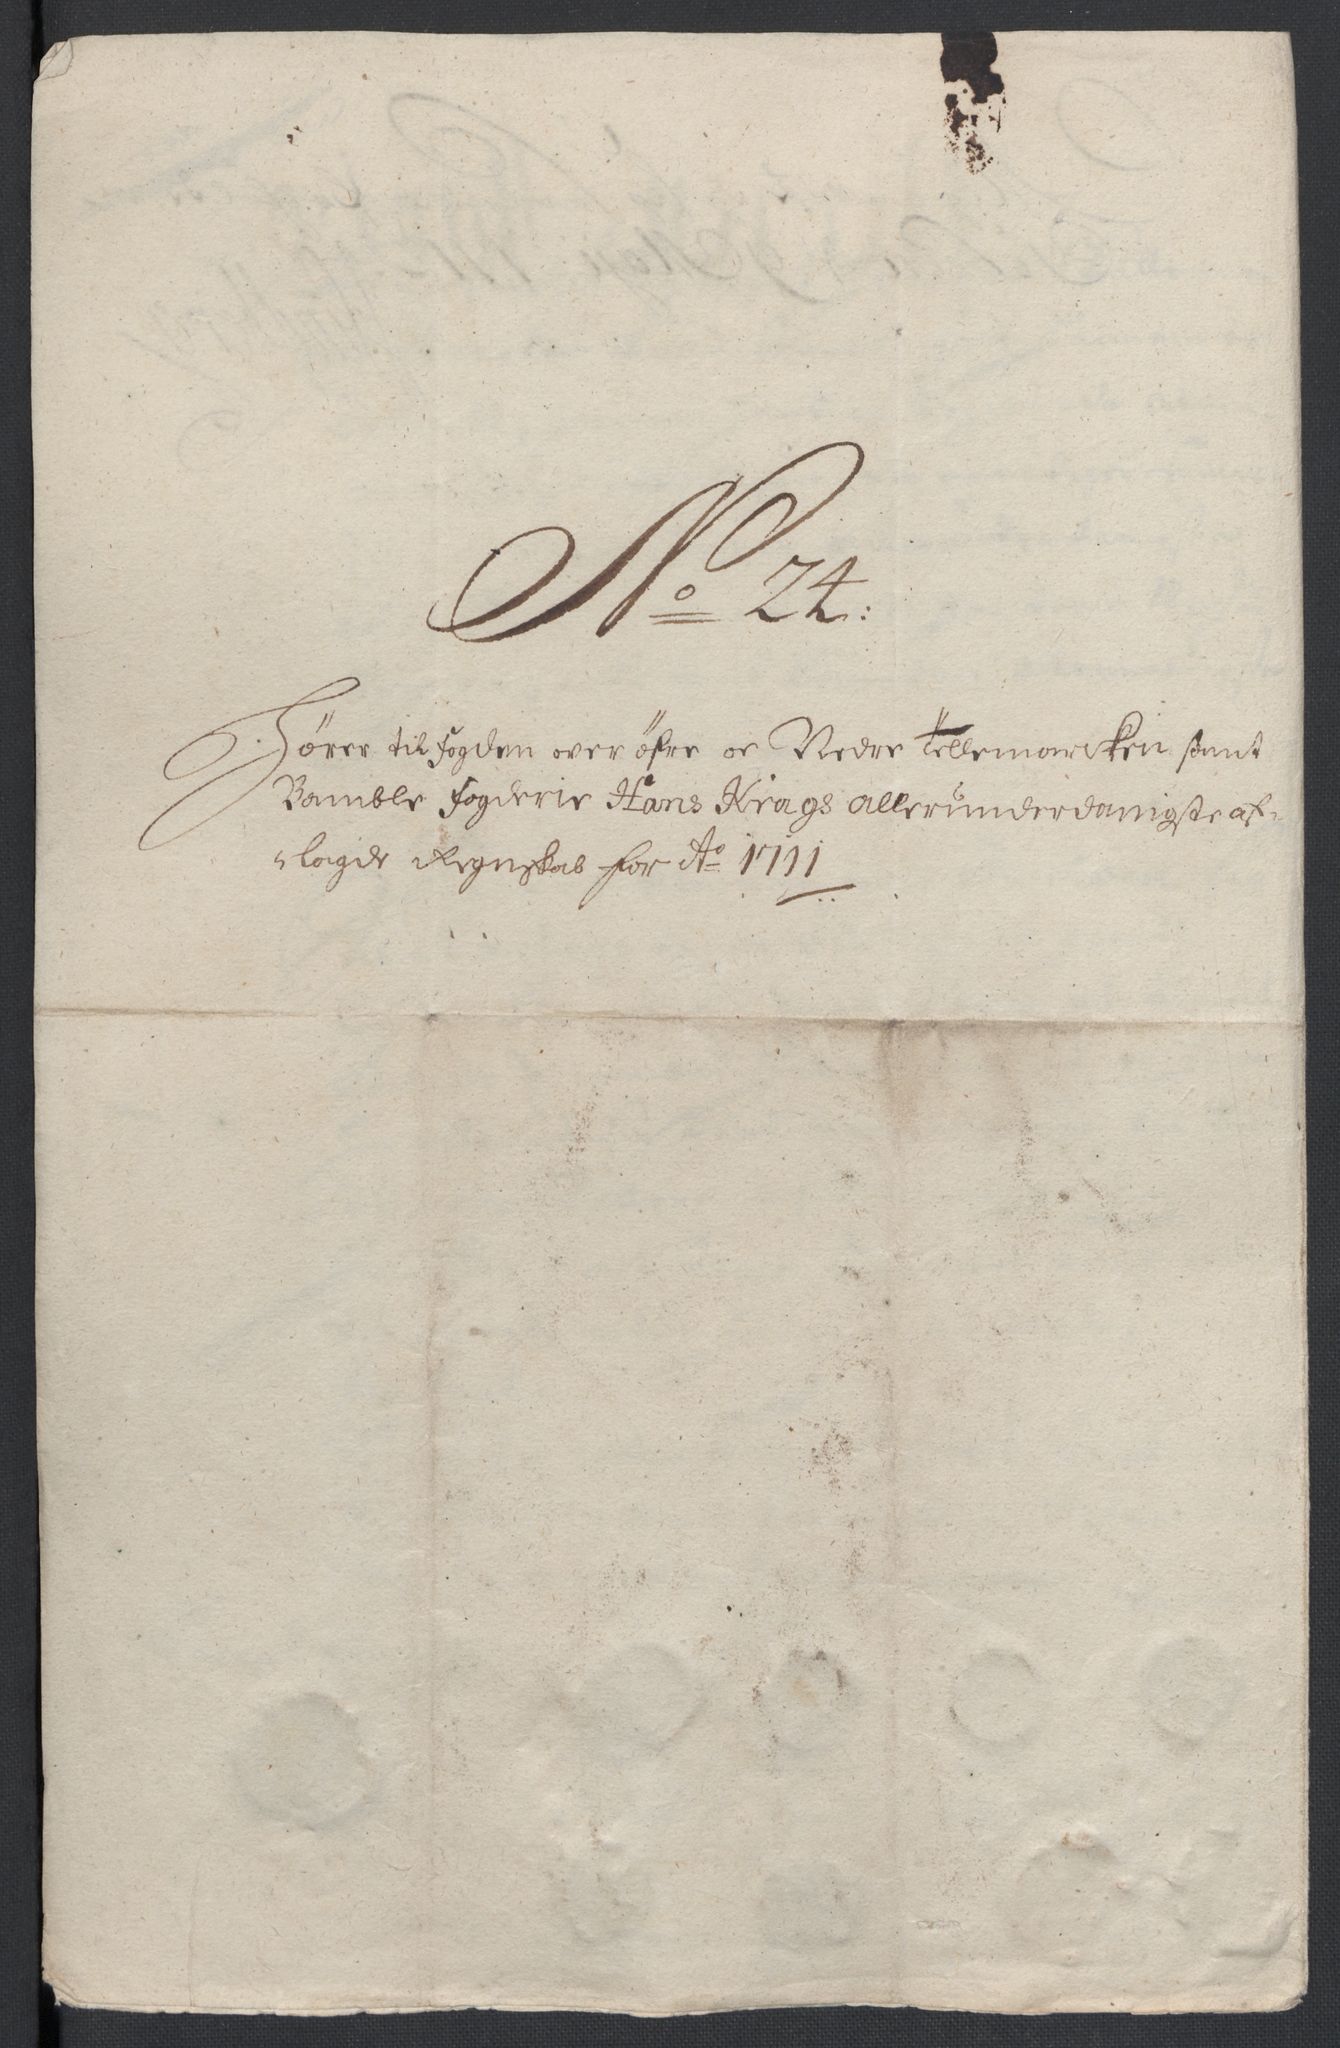 No 24:
Hører til fogden over öfre oc Nedre Tellemarcken samt
Bamble fogderie Hans Krags allerunderdanigste af-
lagde Regnskab for Ao 1711